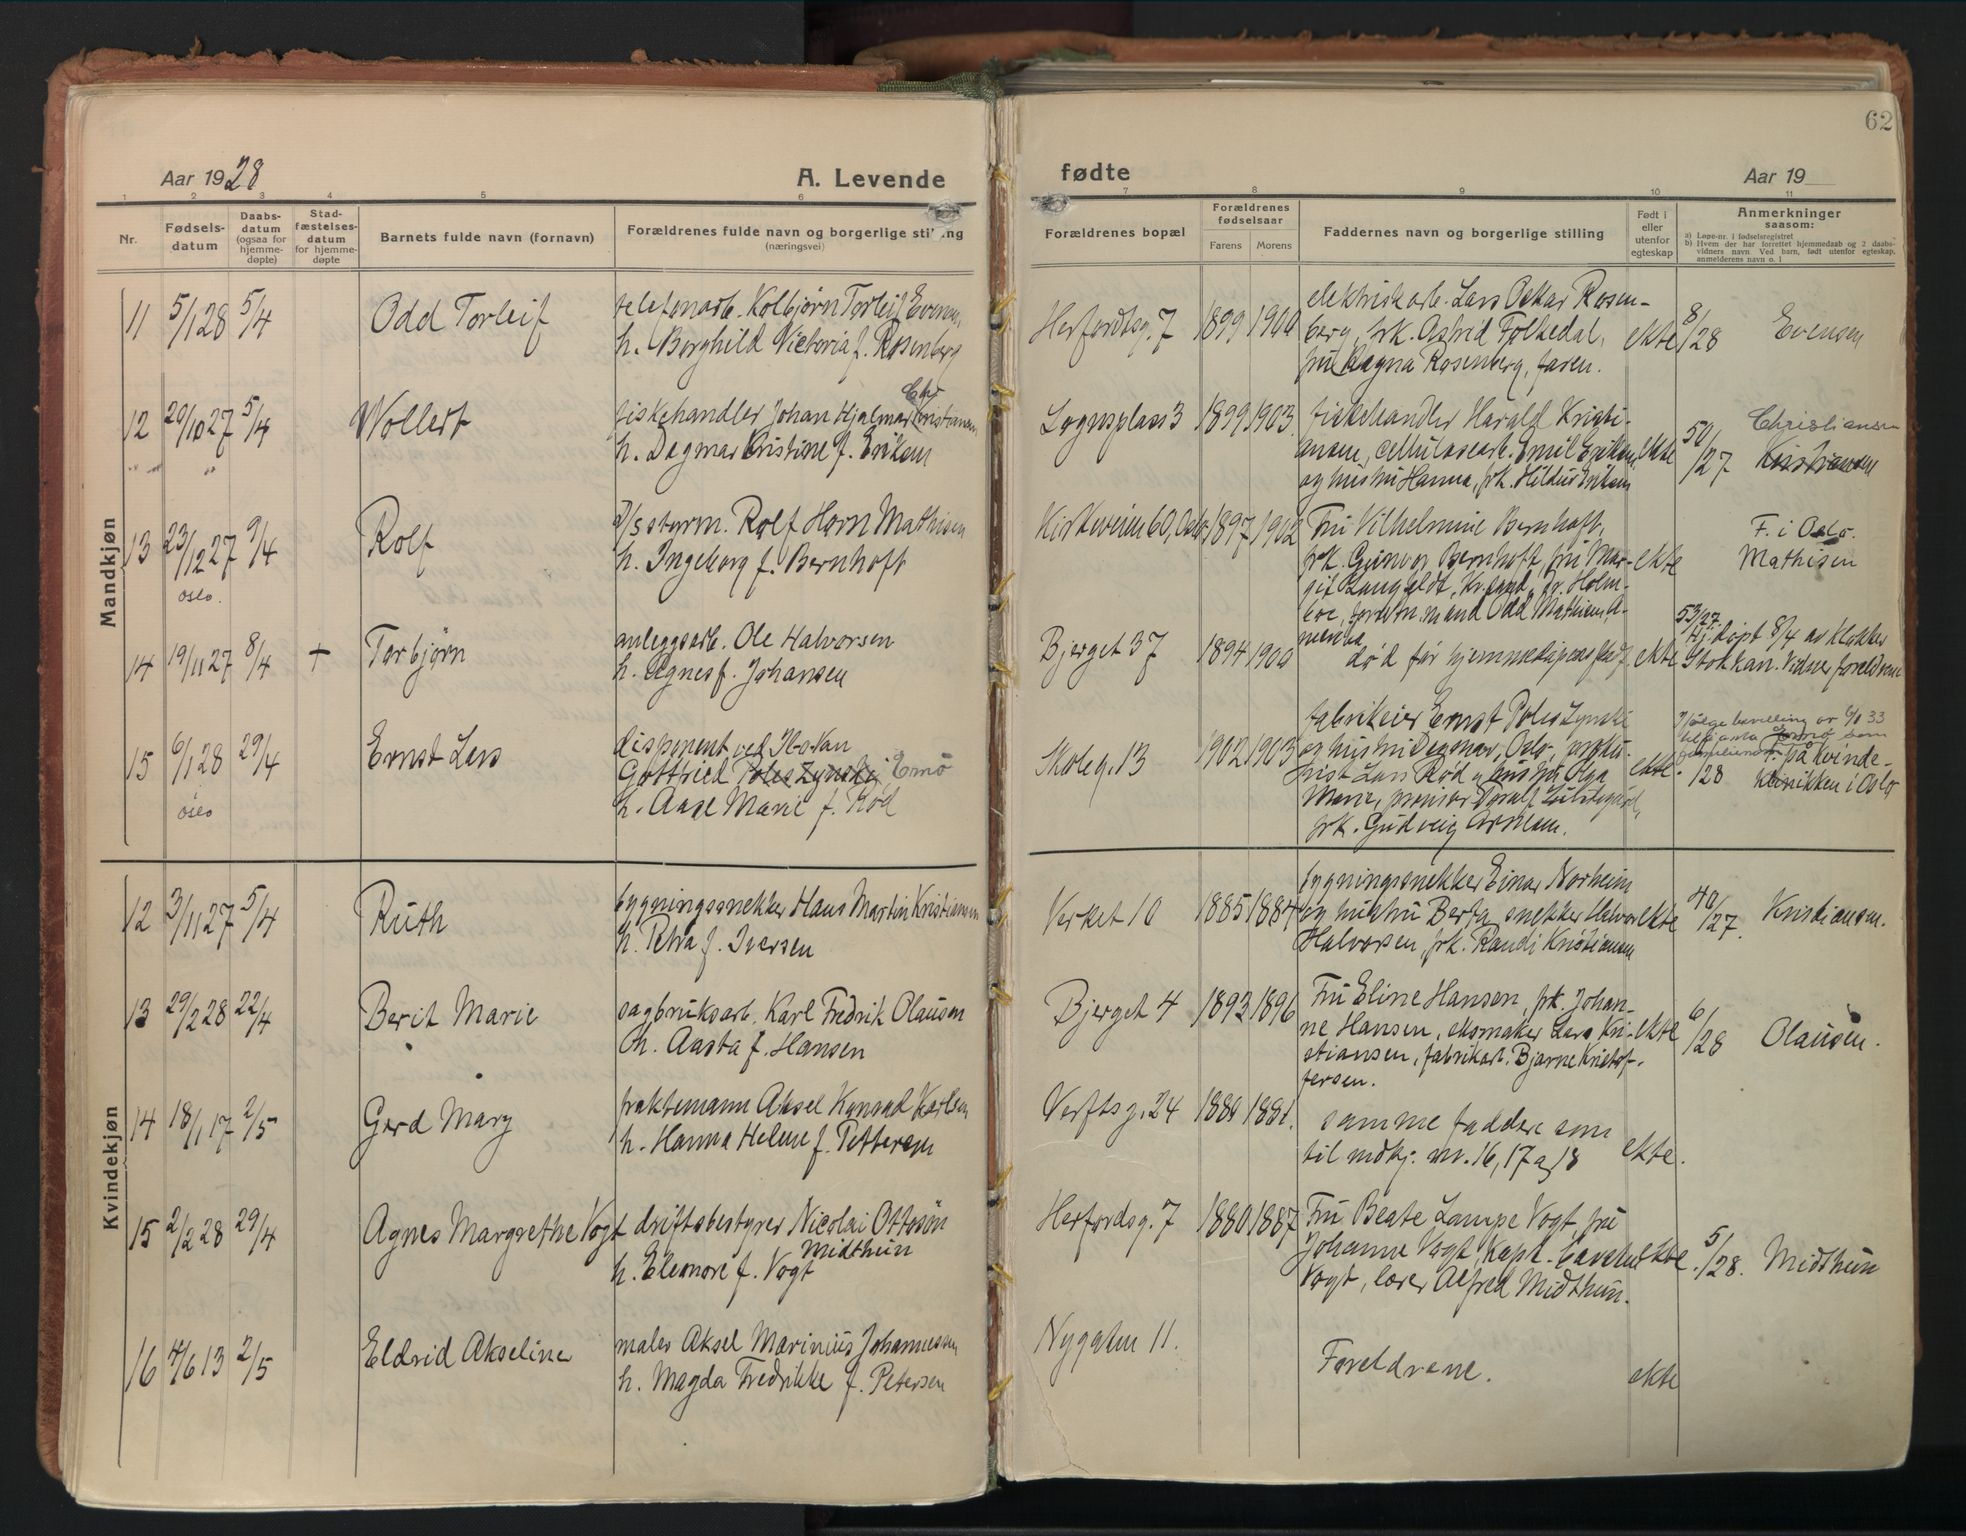 62
Aar 1928
A. Levende
fødte
Aar 19
1 2 3 4 5 6 7 8 9 10 11
Nr.
Fødsels-
datum
Daabs-
datum
(ogsaa for
hjemme-
døpte)
Stad-
fæstelses-
datum
for hjemme-
døpte
Barnets fulde navn (fornavn)
Forældrenes fulde navn og borgerlige stilling
(næringsvei)
Forældrenes bopæl
Forældrenes
fødselsaar
Farens Morens
Faddernes navn og borgerlige stilling
Født i
eller
utenfor
egteskap
Anmerkninger
saasom:
a) Løpe-nr. i fødselsregistret
b) Hvem der har forrettet hjemmedaab og 2 daabs-
vidners navn. Ved barn, født utenfor egteskap,
anmelderens navn o. l
Mandkjøn
11 5/1 28 5/4 Odd Torleif
telefonarb. Kolbjørn Torleif Evensen
h. Borghild Victoria f. Rosenberg
Herfordtsg. 7 1899 1900
elektriskarb. Lars Oskar Rosen-
berg, frk. Astrid Folkedal,
fru Magna Rosenberg, faren.
ekte 8/28 Evensen
12 20/10 27 5/4 Wollert
fiskehandler Johan Hjalmar Christiansen
h. Dagmar Kristine f. Eriksen
Lognsplass 3 1899 1903
fiskehandler Harald Kristi-
ansen, cellulosearb. Emil Eriksen
og hustru Hanna, frk. Hildur Eriksen
ekte 50/27 Christiansen
Kristiansen
13 23/12 27 9/4 Rolf
oslo.
styrm. Rolf Horn Mathisen
h. Ingeborg f. Bernhoft
Kirkeveien 60, Oslo 1897 1902
Fru Vilhelmine Bernhoft,
frk. Gunvor Bernhoft, fru Mar-
git Langfeldt, Kr.sand, Holm-
boe, Odd Mathisen,
ekte F. i Oslo.
Mathisen
14 19/11 27 8/4 + Torbjørn
anleggsarb. Ole Halvorsen
h. Agnes f. Johansen
Bjerget 37 1894 1900
død før hjemmedåpens stadf.
ekte 53/27
Hj.døpt 8/4 av klokker
Stokkan. Vidner foreldrene
15 6/1 28 29/4 Ernst Lars
oslo
disponent ved
Gottfried Poleszynski Ernö
h. Aase Marie f. Rød
Skoleg. 13 1902 1903
fabrikeier Ernst Poleszynski
og hustru Dagmar, Oslo, proku-
rist Lars Rød og hustru Olga
Marie, provisor Toralf
frk. Gudveig
ekte.
Ifølge bevilling av 6/10 33
F. på Kvinde-
/28 klinikken i Oslo
Kvindekjøn
12 3/11 27 5/4 Ruth
bygningssnekker Hans Martin Kristiansen
h. Petra f. Iversen
Verket 10 1885 1884
bygningssnekker Einar Norheim
og hustru Berta, snekker Halvor
Halvorsen, frk. Randi Kristiansen
ekte 40/27. Kristiansen.
13 29/2 28 22/4 Berit Marie
sagbruksarb. Karl Fredrik Olausen
h. Aasta f. Hansen
Bjerget 4 1893 1896
Fru Eline Hansen, frk. Johan-
ne Hansen, eksmaker Lars Kri-
stiansen, fabrikarb. Bjarne Kristof-
fersen.
ekte 6/28 Olausen.
14 18/1 17 2/5 Gerd Mary
fraktemann Aksel Konrad Karlsen
h. Hanna Helene f. Pettersen
Verftsg. 24 1880 1881.
samme faddere som
til mdkj. nr. 16, 17 og 18
ekte.
15 2/2 28 29/4 Agnes Margrethe Vogt
driftsbestyrer Nicolai Ottosøn
Midthun
h. Eleonore f. Vogt
Herfordsg. 7 1880 1887
Fru Beate Lampe Vogt, fru
Johanne Vogt, Kapt.
Vogt, lærer Alfred Midthun.
ekte. 5/28. Midthun
16 4/6 13 2/5 Eldrid Akseline
maler Aksel Marinius Johannesen
h. Magda Fredrikke f. Petersen
Nygaten 11.
Foreldrene.
ekte